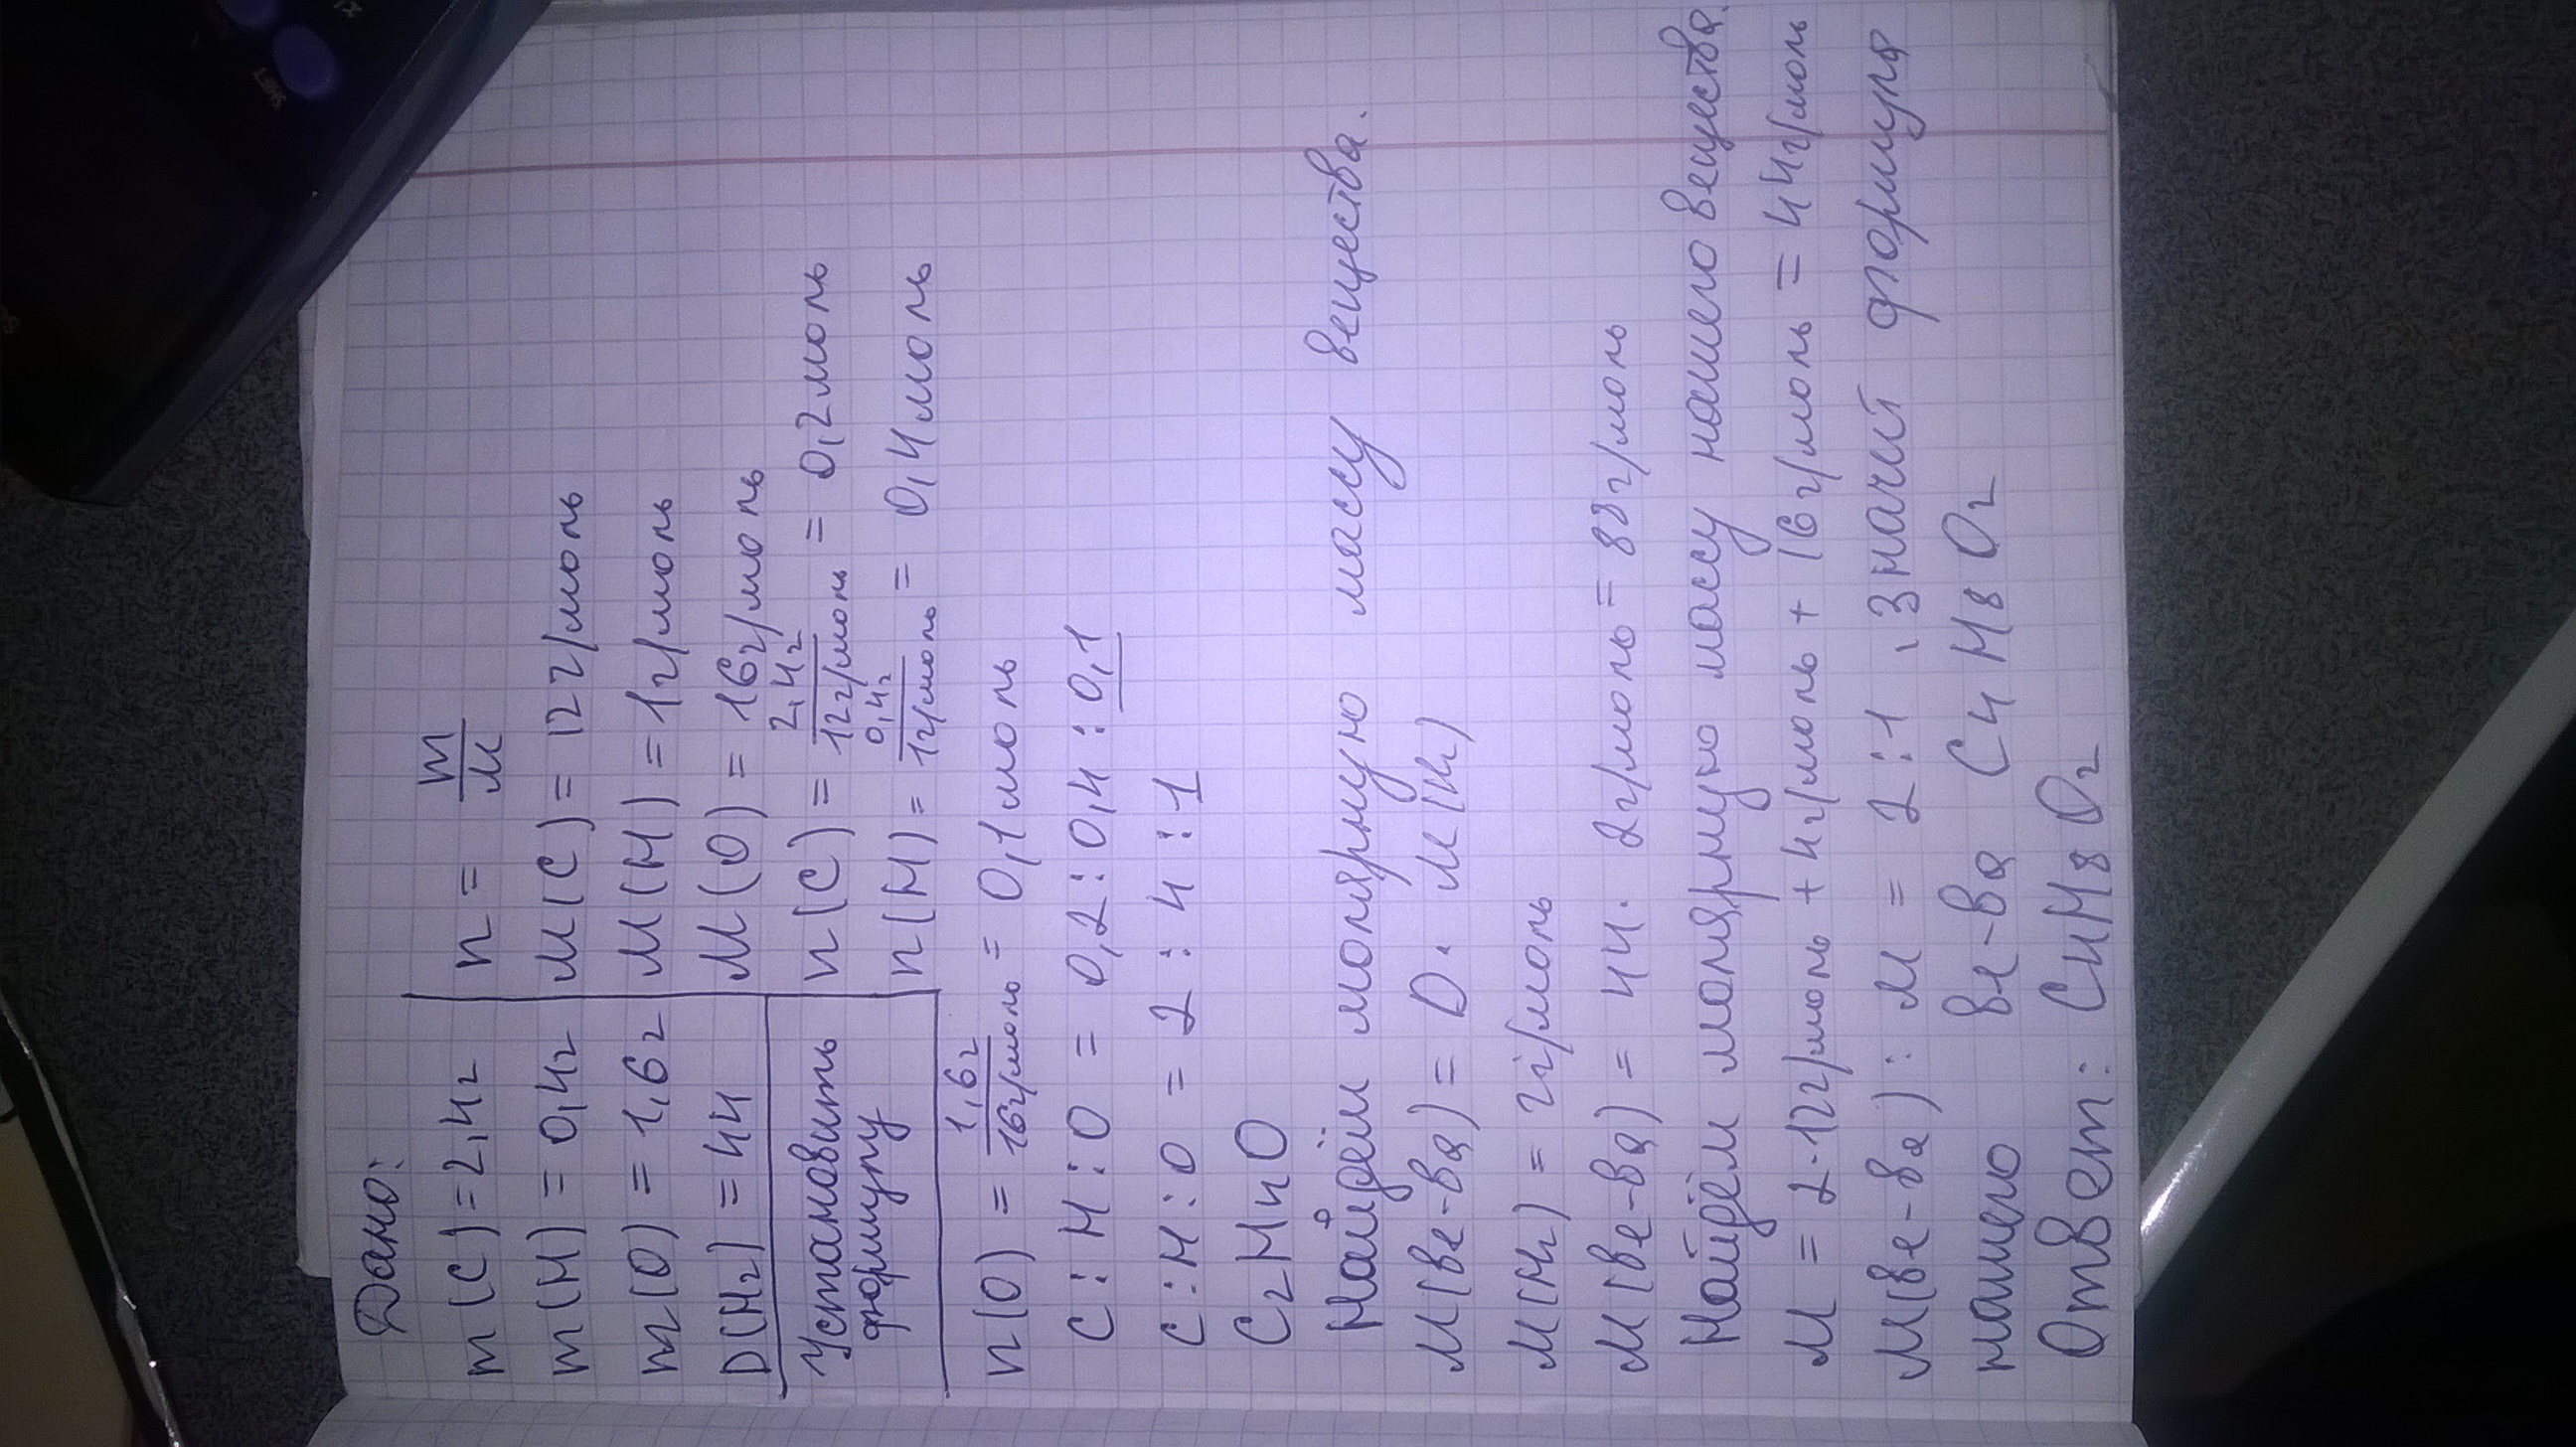 Дано:
m(C)=2,4г
m(H)=0,4г
m(O)=1,6г
D(H₂)=44
Установить
формулу
n = m/M
M(C)=12г/моль
M(H)=1г/моль
M(O)=16г/моль
n(C)= 2,4г/12г/моль = 0,2моль
n(H)= 0,4г/1г/моль = 0,4моль
n(O)= 1,6г/16г/моль = 0,1моль
C:H:O = 0,2:0,4:0,1
C:H:O = 2:4:1
C₂H₄O
Найдём молярную массу вещества.
M(ве-ва)= D·M(H₂)
M(H₂)=2г/моль
M(ве-ва)=44·2г/моль=88г/моль
Найдём молярную массу нашего вещества.
M=2·12г/моль+4г/моль+16г/моль=44г/моль
M(ве-ва):M=2:1, значит формула
нашего ве-ва C₄H₈O₂
Ответ: C₄H₈O₂
SHIFT